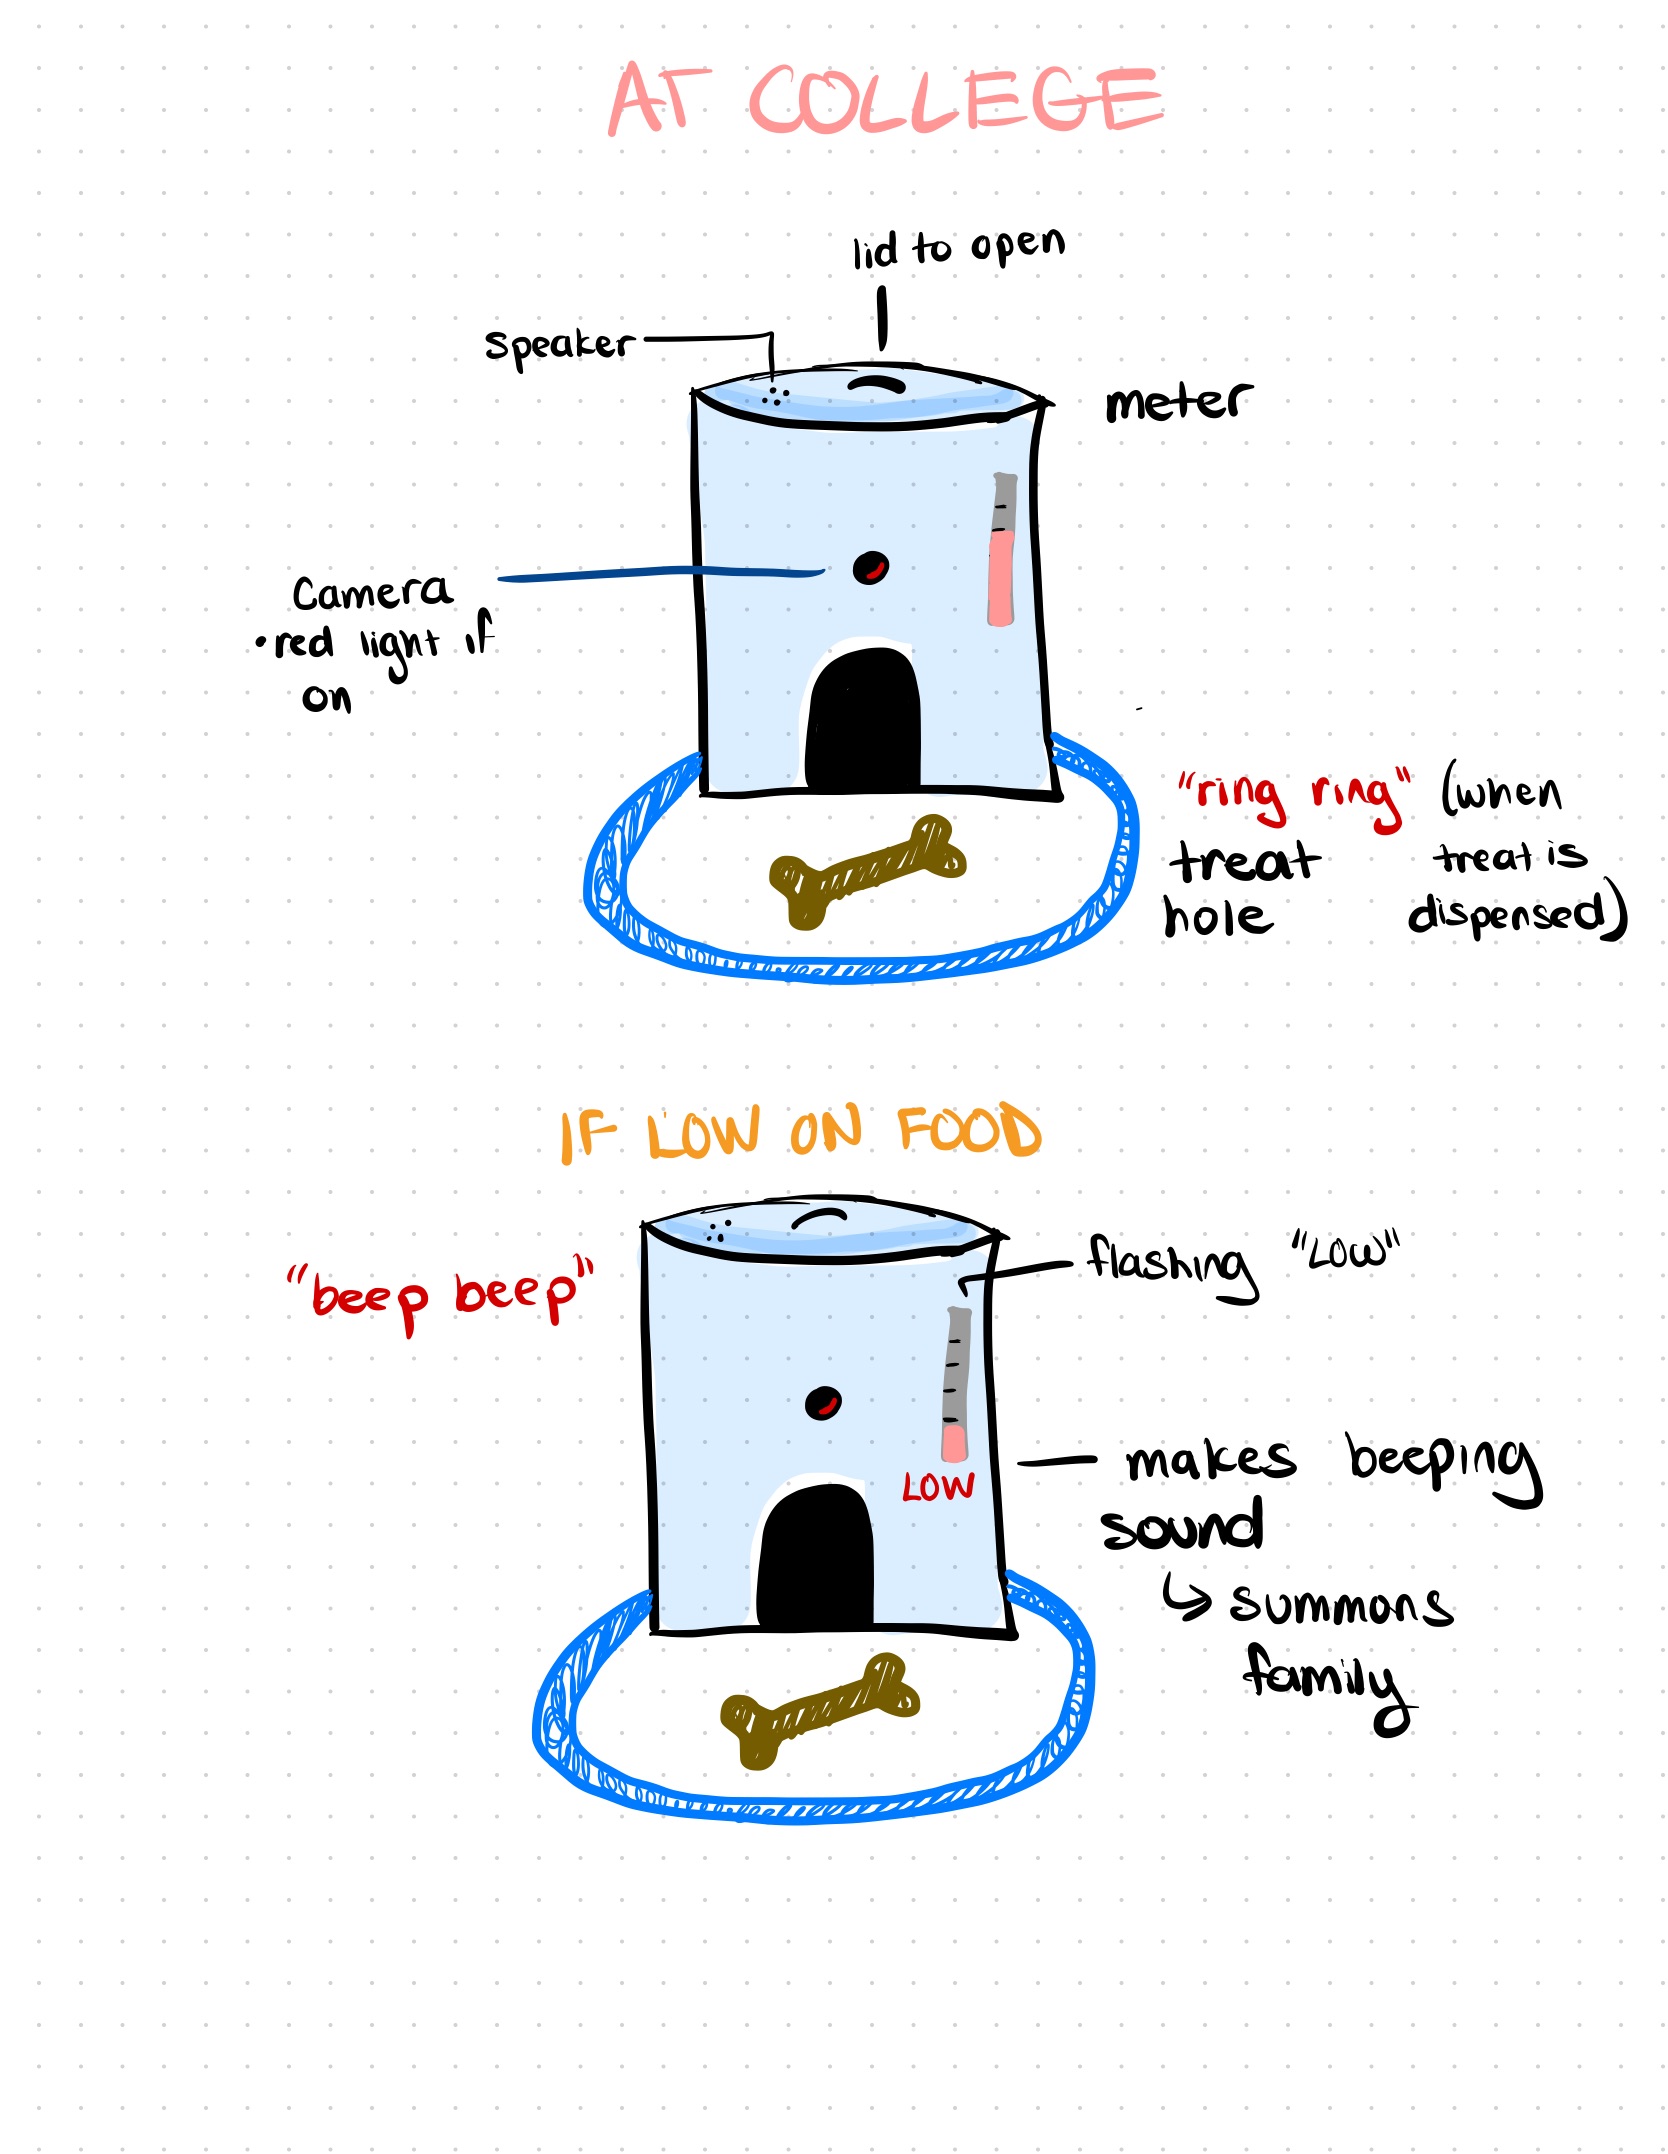 AT COLLEGE
lid to open
speaker
meter
Camera
• red light if
on
"ring ring" (when
treat treat is
hole dispensed)
IF LOW ON FOOD
"beep beep"
flashing "LOW"
LOW
makes beeping
sound
↳ summons
family